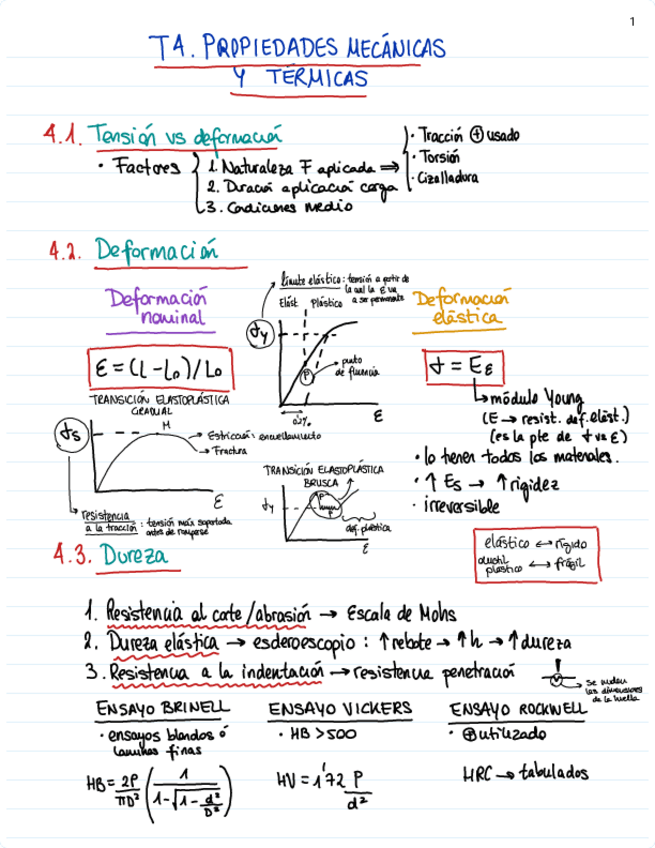 1
T4. PROPIEDADES MECÁNICAS
Y TÉRMICAS
4.1. Tensión vs deformación
· Factores
1. Naturaleza F aplicada ⇒
2. Duración aplicación carga
3. Condiciones medio
· Tracción ⊕ usado
· Torsión
· Cizalladura
4.2. Deformación
Deformación
nominal
ε = (L - L₀)/L₀
límite elástico: tensión a partir de
la cual la ε va
a ser permanente
Elást Plástico
σy
P
→ punto
de fluencia
0'2%
ε
Deformación
elástica
σ = Eε
módulo Young
(E → resist. def. elást.)
(es la pte de σ vs ε)
· lo tienen todos los materiales.
· ↑ Es → ↑ rigidez
· irreversible
TRANSICIÓN ELASTOPLÁSTICA
GRADUAL
σs
M
→ Estricción: encuellamiento
→ Fractura
ε
resistencia
a la tracción: tensión máx soportada
antes de romperse
TRANSICIÓN ELASTOPLÁSTICA
BRUSCA
σy
def. plástica
ε
elástico ↔ rígido
dúctil
plástico ↔ frágil
4.3. Dureza
1. Resistencia al corte/abrasión → Escala de Mohs
2. Dureza elástica → escleroescopio: ↑ rebote → ↑ h → ↑ dureza
3. Resistencia a la indentación → resistencia penetración
→ se miden
las dimensiones
de la huella
ENSAYO BRINELL
· ensayos blandos ó
láminas finas
HB = 2P/πD² (1/(1-√(1-d²/D²)))
ENSAYO VICKERS
· HB > 500
HV = 1'72 P/d²
ENSAYO ROCKWELL
· ⊕ utilizado
HRC → tabulados